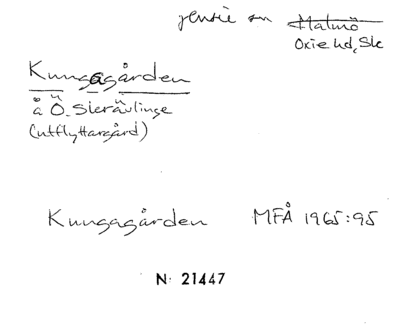 Malmö
Oxie hd, Sk
Kungagården
å Ö. Skrävlinge
(utflyttargård)
Kungagården MFÅ 1965:95
N 21447